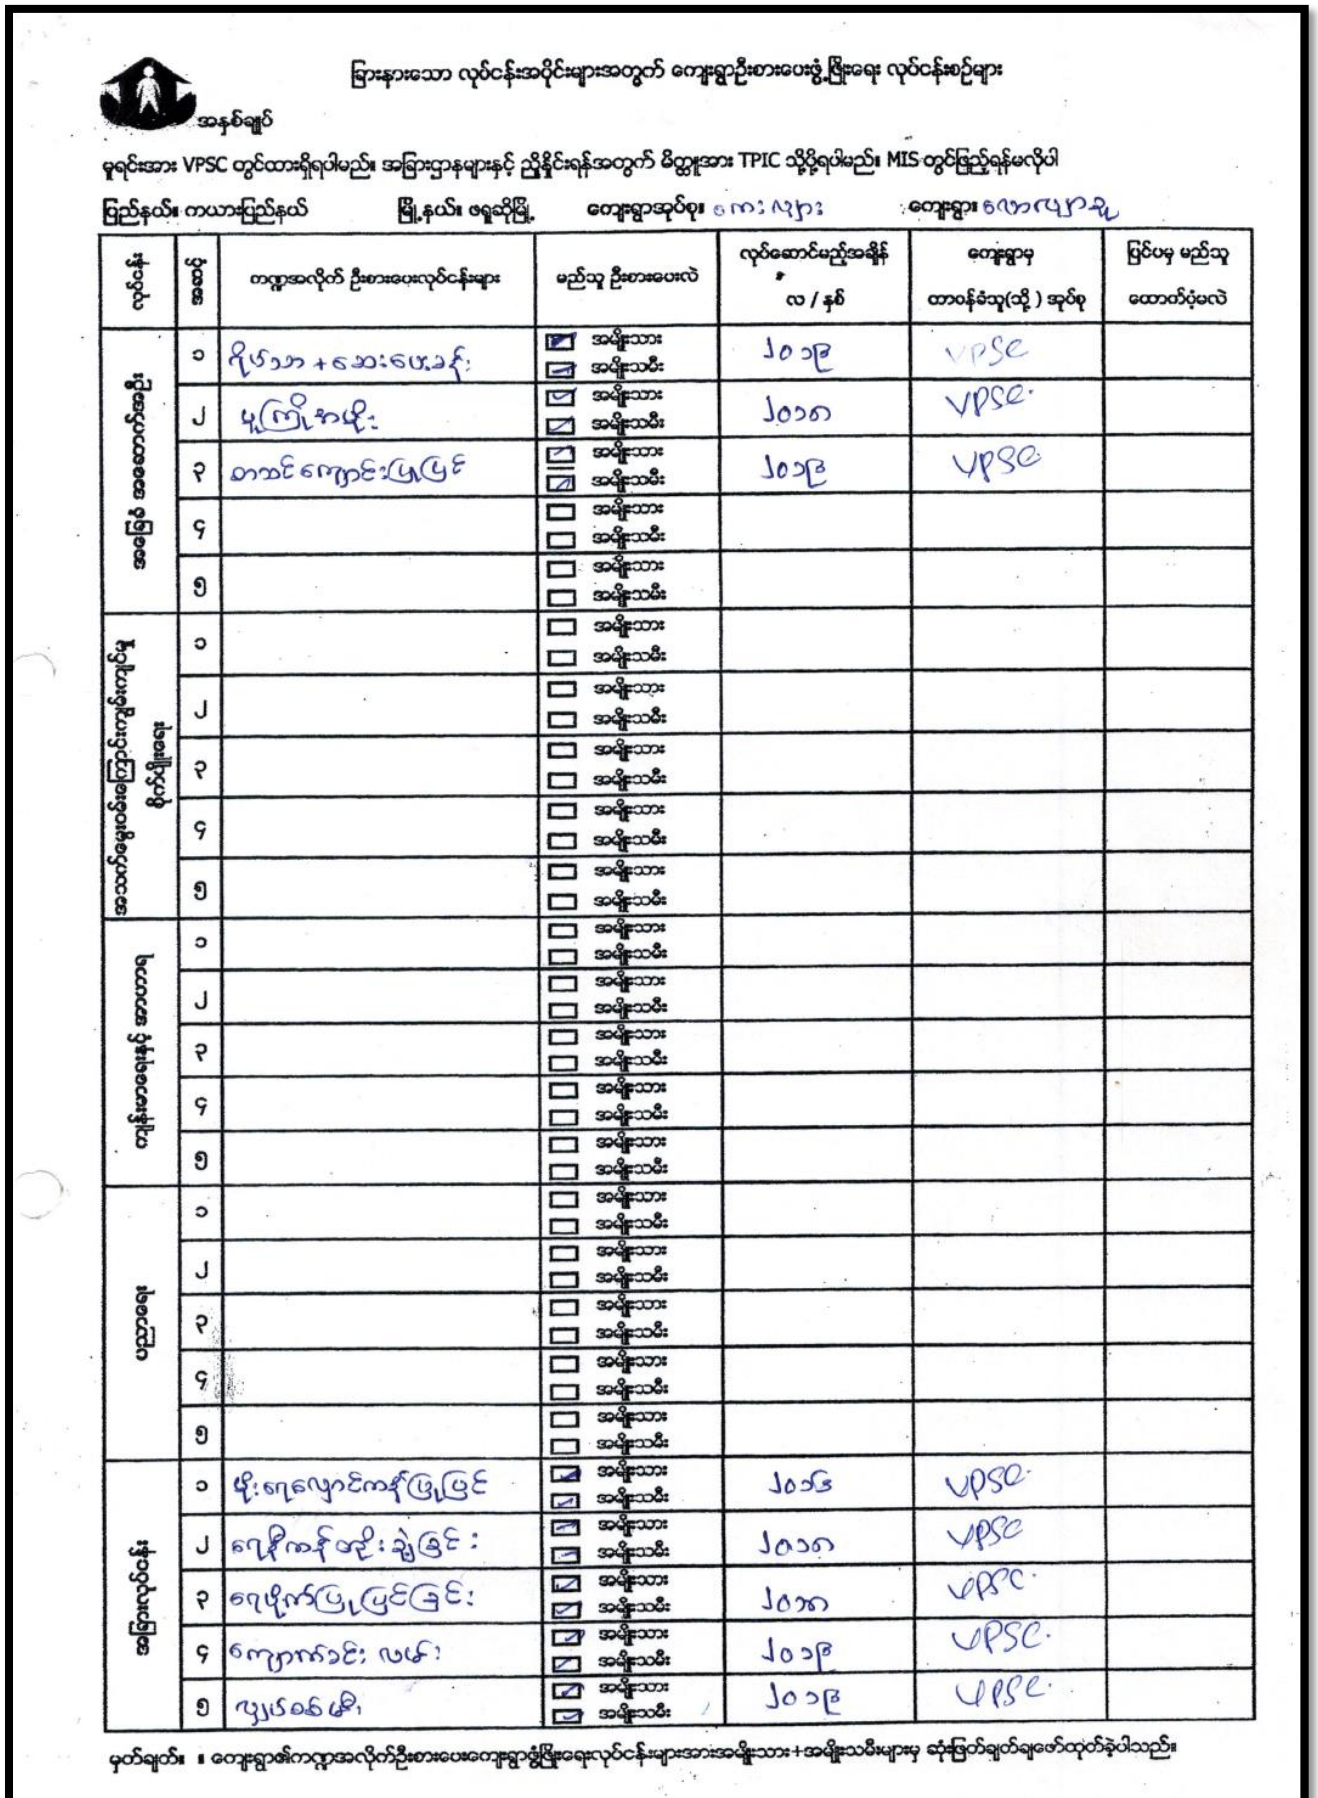 ခြားနားသော လုပ်ငန်းအပိုင်းများအတွက် ကျေးရွာဦးစားပေးဖွံ့ဖြိုးရေး လုပ်ငန်းစဉ်များ
အနှစ်ချုပ်
မူရင်းအား VPSC တွင်ထားရှိရပါမည်။ အခြားဌာနများနှင့် ညှိနှိုင်းရန်အတွက် မိတ္တူအား TPIC သို့ပို့ရပါမည်။ MIS တွင်ဖြည့်ရန်မလိုပါ
ပြည်နယ်။ ကယားပြည်နယ် မြို့နယ်။ ဖရူဆိုမြို့ ကျေးရွာအုပ်စု။ ကျေးရွာ။
လုပ်ငန်း အဆင့် ကဏ္ဍအလိုက် ဦးစားပေးလုပ်ငန်းများ မည်သူ ဦးစားပေးလဲ လုပ်ဆောင်မည့်အချိန် လ / နှစ် ကျေးရွာမှ တာဝန်ခံသူ(သို့) အုပ်စု ပြင်ပမှ မည်သူ ထောက်ပံ့မလဲ
အခြေခံ အဆောက်အဦး
၁ အမျိုးသား အမျိုးသမီး ၂၀၁၉ VPSC
၂ အမျိုးသား အမျိုးသမီး ၂၀၁၈ VPSC
၃ စာသင်ကျောင်းပြုပြင် အမျိုးသား အမျိုးသမီး ၂၀၁၉ VPSC
၄ အမျိုးသား အမျိုးသမီး
၅ အမျိုးသား အမျိုးသမီး
အသက်မွေးဝမ်းကြောင်းကျွမ်းကျင်မှု
စိုက်ပျိုးရေး
၁ အမျိုးသား အမျိုးသမီး
၂ အမျိုးသား အမျိုးသမီး
၃ အမျိုးသား အမျိုးသမီး
၄ အမျိုးသား အမျိုးသမီး
၅ အမျိုးသား အမျိုးသမီး
ကျန်းမာရေးနှင့် အာဟာရ
၁ အမျိုးသား အမျိုးသမီး
၂ အမျိုးသား အမျိုးသမီး
၃ အမျိုးသား အမျိုးသမီး
၄ အမျိုးသား အမျိုးသမီး
၅ အမျိုးသား အမျိုးသမီး
ပညာရေး
၁ အမျိုးသား အမျိုးသမီး
၂ အမျိုးသား အမျိုးသမီး
၃ အမျိုးသား အမျိုးသမီး
၄ အမျိုးသား အမျိုးသမီး
၅ အမျိုးသား အမျိုးသမီး
အခြားလုပ်ငန်း
၁ မိုးရေလှောင်ကန်ပြုပြင် အမျိုးသား အမျိုးသမီး ၂၀၁၆ VPSC
၂ ရေနီကန်တိုးချဲ့ခြင်း အမျိုးသား အမျိုးသမီး ၂၀၁၈ VPSC
၃ ရေပိုက်ပြုပြင်ခြင်း အမျိုးသား အမျိုးသမီး ၂၀၁၈ VPSC
၄ ကျောက်ခင်း လမ်း အမျိုးသား အမျိုးသမီး ၂၀၁၉ VPSC
၅ လျှပ်စစ်မီး အမျိုးသား အမျိုးသမီး ၂၀၁၉ VPSC
မှတ်ချက်။ ။ ကျေးရွာ၏ကဏ္ဍအလိုက်ဦးစားပေးကျေးရွာဖွံ့ဖြိုးရေးလုပ်ငန်းများအားအမျိုးသား+အမျိုးသမီးများမှ ဆုံးဖြတ်ချက်ချဖော်ထုတ်ခဲ့ပါသည်။